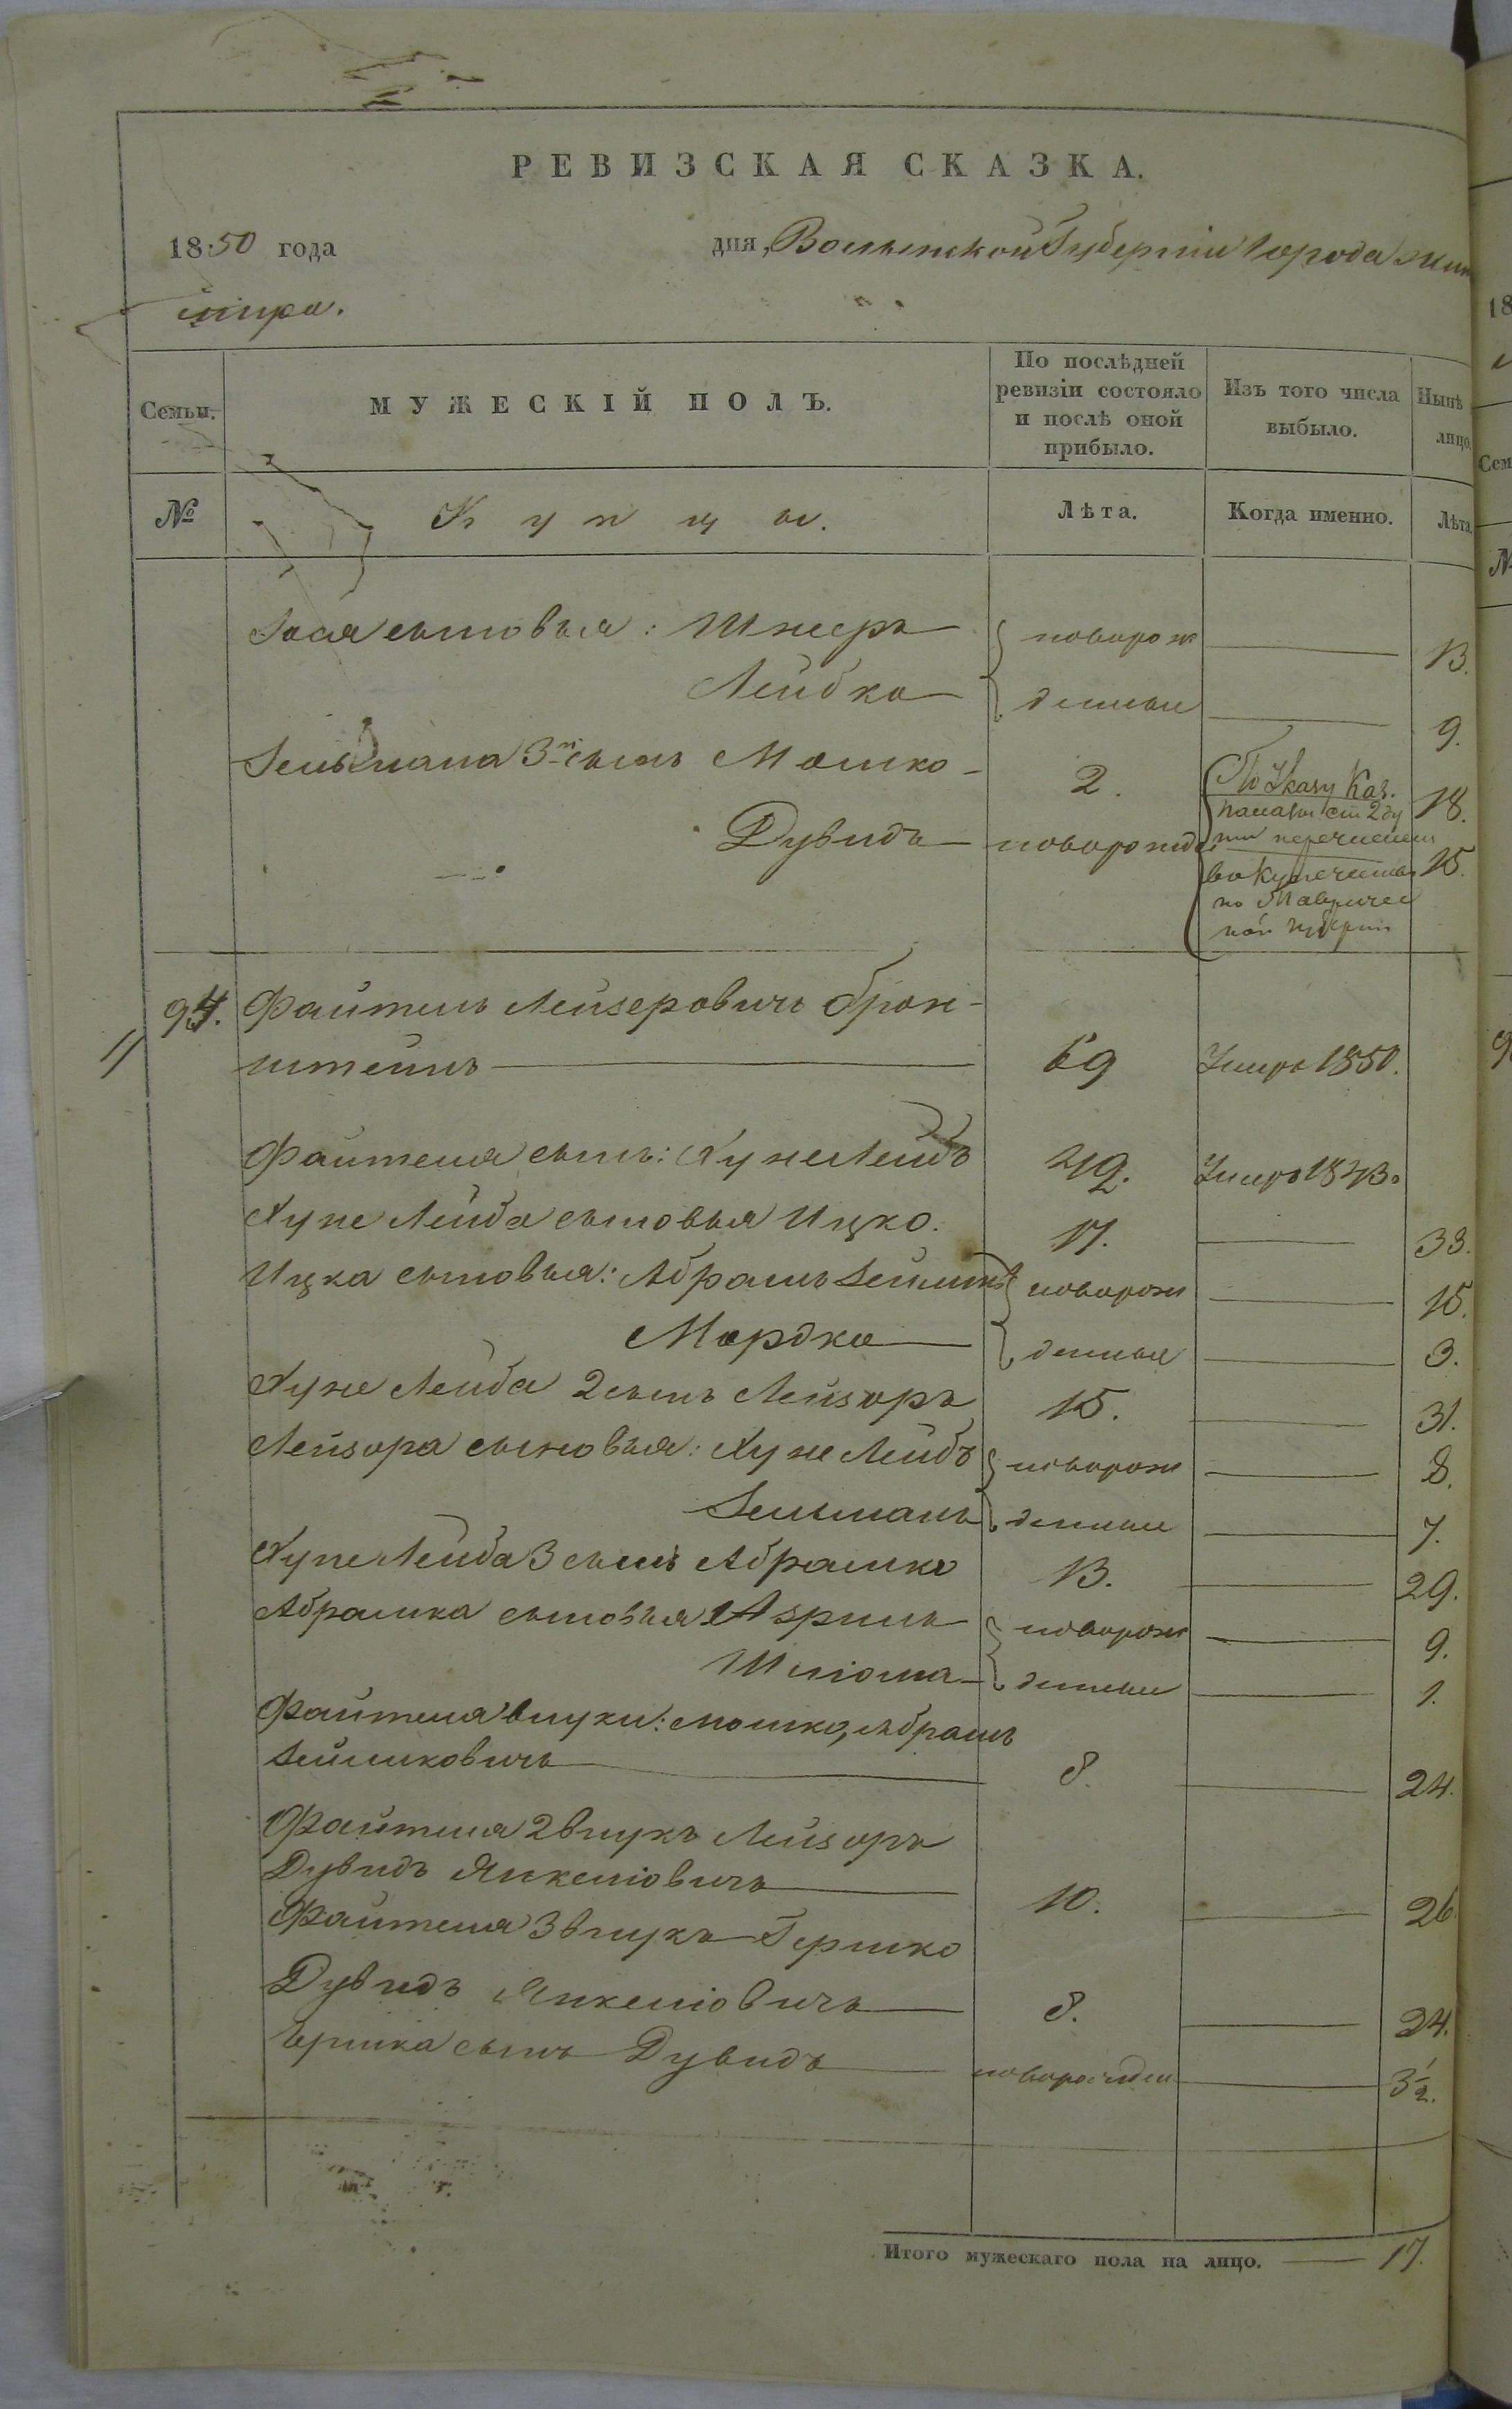 РЕВИЗСКАЯ СКАЗКА.
1850 года дня, Волынской Губернии Города Жит
мира.
Семьи. МУЖЕСКІЙ ПОЛЪ. По послѣдней ревизіи состояло и послѣ оной прибыло. Изъ того числа выбыло. Нынѣ лицо.
№ Купцы. Лѣта. Когда именно. Лѣта.
сыновья: Шнееръ новорож 13.
Лейбко денные 9.
Зельмана 3й сынъ Мошко 2. По Указу Каз. 18.
палаты
Дувидъ новорожд. перечислены 15.
в Купечество
по Тавричес
кой губерніи
94. Файтель Лейзеровичъ Брон-
штейнъ 69 Умеръ 1850.
Файтеля сынъ: Хуне Лейбъ 42. Умеръ 1843.
Хуне Лейба сыновья Ицко. 17. 33.
Ицка сыновья: Абрамъ Зейликъ новорож 15.
Мордко денные 3.
Хуне Лейба 2 сынъ Лейзоръ 15. 31.
Лейзора сыновья: Хуне Лейбъ новорож 8.
Зельманъ денные 7.
Хуне Лейба 3 сынъ Абрамко 13. 29.
Абрамка сыновья Азриль новорож 9.
Шліома денные 1.
Файтеля внуки: Мошко, Абрамъ
Зейликовичъ 8. 24.
Файтеля 2 внукъ Лейзоръ
Дувидъ Янкеліовичъ 10. 26.
Файтеля 3 внукъ Гершко
Дувидъ Янкеліовичъ 8. 24.
Ершка сынъ Дувидъ новорожден 3½.
Итого мужескаго пола на лицо. 17.